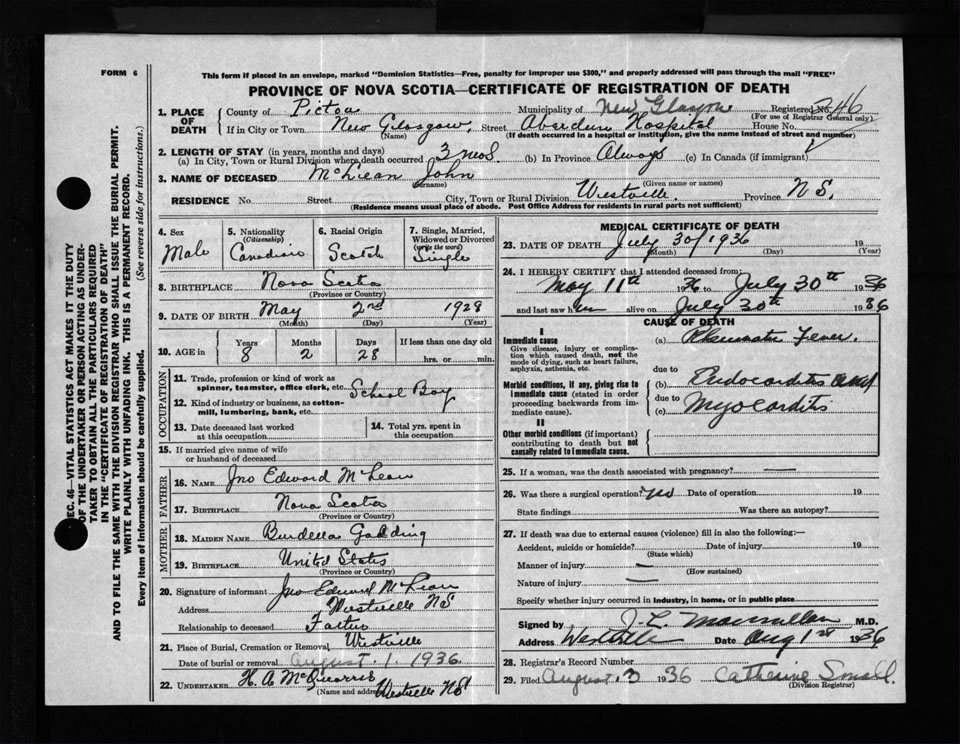 FORM 6
This form if placed in an envelope, marked "Dominion Statistics—Free, penalty for improper use $300," and properly addressed will pass through the mail "FREE"
PROVINCE OF NOVA SCOTIA—CERTIFICATE OF REGISTRATION OF DEATH
1. PLACE OF DEATH
County of Pictou Municipality of New Glasgow Registered No. 246
(For use of Registrar General only)
If in City or Town New Glasgow, Street Aberdeen Hospital House No.
(Name) (If death occurred in a hospital or institution, give the name instead of street and number)
2. LENGTH OF STAY (in years, months and days)
(a) In City, Town or Rural Division where death occurred 3 mos. (b) In Province Always (c) In Canada (if immigrant)
3. NAME OF DECEASED McLean John
(Surname) (Given name or names)
RESIDENCE No. Street City, Town or Rural Division Westville. Province N S,
(Residence means usual place of abode. Post Office Address for residents in rural parts not sufficient)
4. Sex Male
5. Nationality (Citizenship) Canadian
6. Racial Origin Scotch
7. Single, Married, Widowed or Divorced (write the word) Single
8. BIRTHPLACE Nova Scotia
(Province or Country)
9. DATE OF BIRTH May 2nd 1928
(Month) (Day) (Year)
10. AGE in Years 8 Months 2 Days 28 If less than one day old hrs. or min.
OCCUPATION
11. Trade, profession or kind of work as spinner, teamster, office clerk, etc. School Boy
12. Kind of industry or business, as cotton-mill, lumbering, bank, etc.
13. Date deceased last worked at this occupation
14. Total yrs. spent in this occupation
15. If married give name of wife or husband of deceased
FATHER
16. NAME Jno Edward McLean
17. BIRTHPLACE Nova Scotia
(Province or Country)
MOTHER
18. MAIDEN NAME Burdella Gadding
19. BIRTHPLACE United States
(Province or Country)
20. Signature of informant Jno Edward McLean
Address Westville NS
Relationship to deceased Father
21. Place of Burial, Cremation or Removal Westville
Date of burial or removal August 1 1936
22. UNDERTAKER H. A. McQuarrie
(Name and address) Westville NS
MEDICAL CERTIFICATE OF DEATH
23. DATE OF DEATH July 30/1936 19
(Month) (Day) (Year)
24. I HEREBY CERTIFY that I attended deceased from:
May 11th 1936 to July 30th 1936
and last saw him alive on July 30th 1936
CAUSE OF DEATH
I
Immediate cause
Give disease, injury or complication which caused death, not the mode of dying, such as heart failure, asphyxia, asthenia, etc.
(a) Rheumatic Fever.
due to
Morbid conditions, if any, giving rise to immediate cause (stated in order proceeding backwards from immediate cause).
(b) Endocarditis and
due to
(c) Myocarditis
II
Other morbid conditions (if important) contributing to death but not causally related to immediate cause.
25. If a woman, was the death associated with pregnancy?
26. Was there a surgical operation? no Date of operation 19
State findings Was there an autopsy?
27. If death was due to external causes (violence) fill in also the following:—
Accident, suicide or homicide? Date of injury 19
(State which)
Manner of injury
(How sustained)
Nature of injury
Specify whether injury occurred in industry, in home, or in public place
Signed by J. L. Macmillan M.D.
Address Westville Date Aug 1st 1936
28. Registrar's Record Number
29. Filed August 3 1936 Catherine Small.
(Division Registrar)
SEC. 46—VITAL STATISTICS ACT MAKES IT THE DUTY
OF THE UNDERTAKER OR PERSON ACTING AS UNDER-
TAKER TO OBTAIN ALL THE PARTICULARS REQUIRED
IN THE "CERTIFICATE OF REGISTRATION OF DEATH"
AND TO FILE THE SAME WITH THE DIVISION REGISTRAR WHO SHALL ISSUE THE BURIAL PERMIT.
WRITE PLAINLY WITH UNFADING INK. THIS IS A PERMANENT RECORD.
Every item of information should be carefully supplied. (See reverse side for instructions.)